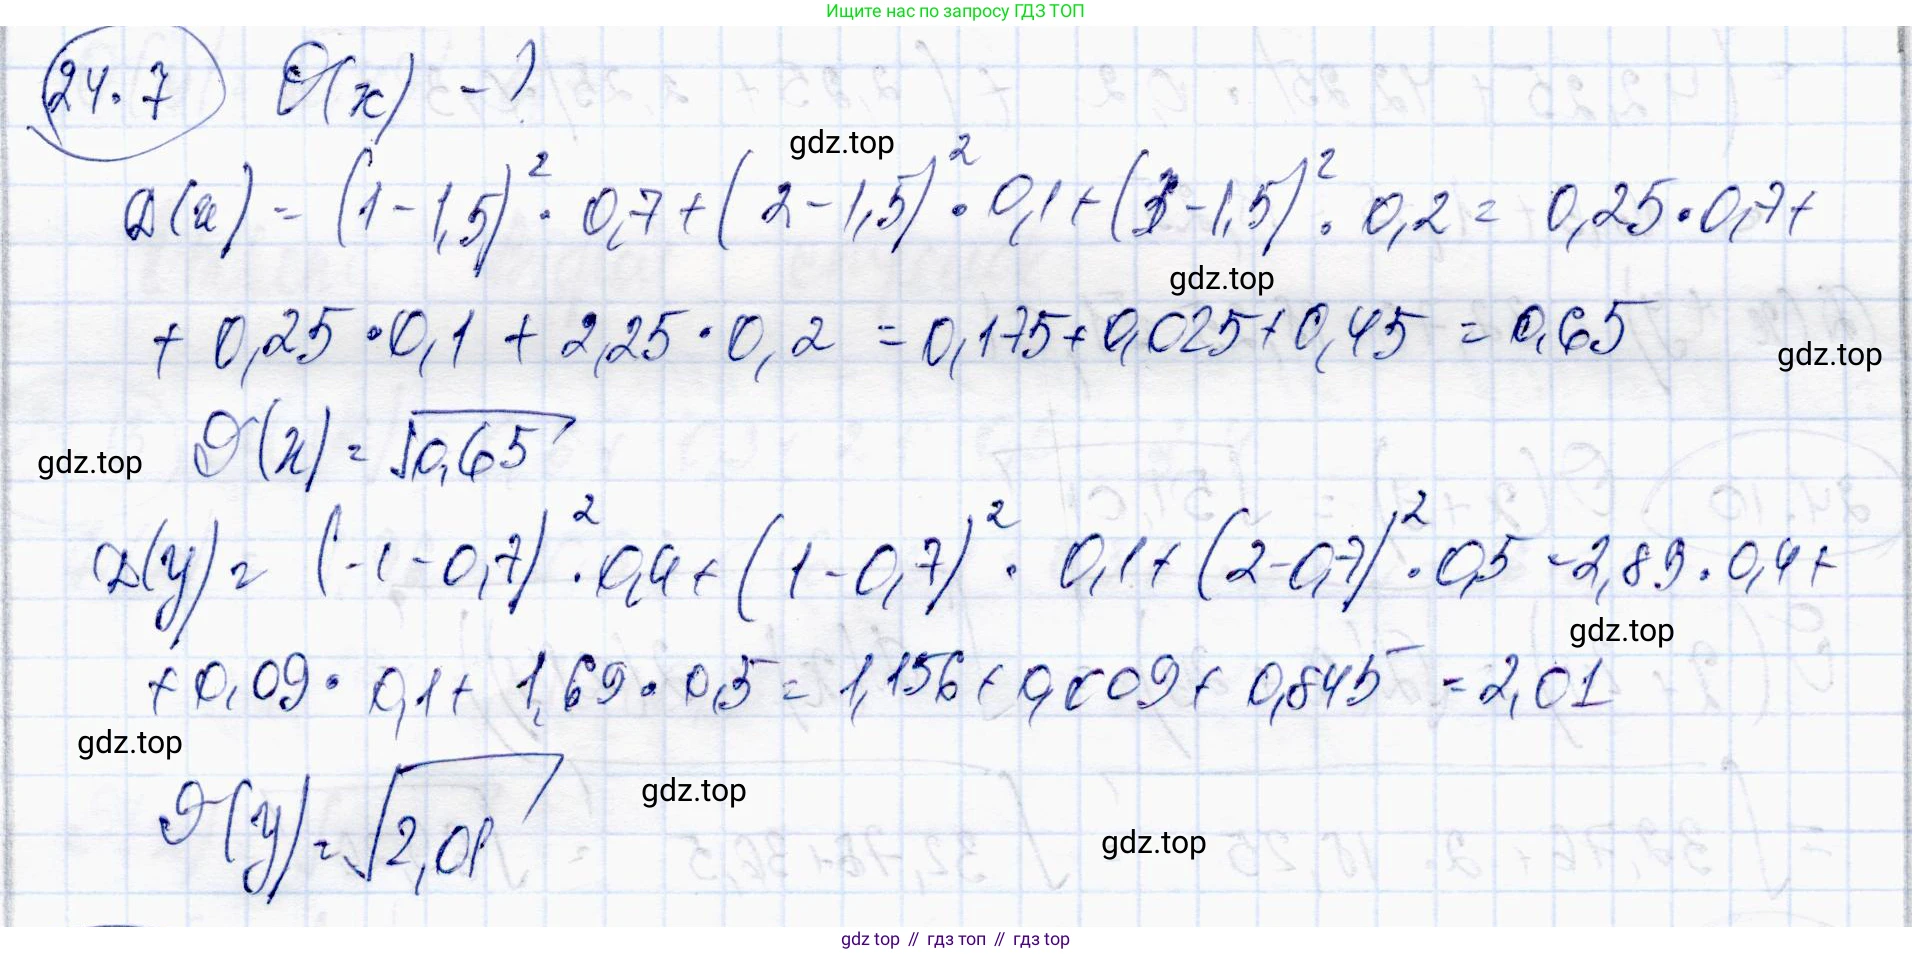 Ищите нас по запросу ГДЗ ТОП
24.7 σ(x) - ?
gdz.top
D(x) = (1-1,5)² · 0,7 + (2-1,5)² · 0,1 + (3-1,5)² · 0,2 = 0,25 · 0,7 +
gdz.top
+ 0,25 · 0,1 + 2,25 · 0,2 = 0,175 + 0,025 + 0,45 = 0,65
gdz.top
σ(x) = √0,65
gdz.top
D(y) = (-1-0,7)² · 0,4 + (1-0,7)² · 0,1 + (2-0,7)² · 0,5 = 2,89 · 0,4 +
gdz.top
+ 0,09 · 0,1 + 1,69 · 0,5 = 1,156 + 0,009 + 0,845 = 2,01
gdz.top
σ(y) = √2,01
gdz.top
gdz.top
gdz top // гдз топ // гдз top